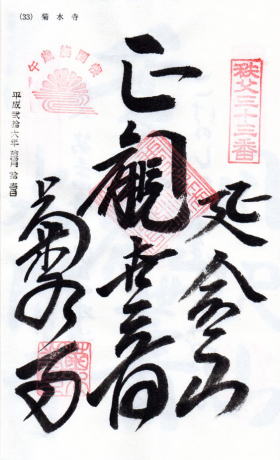 (33) 菊水寺
秩父三十三番
延命山
正観世音
午歳総開帳
平成弐拾六年
菊水寺